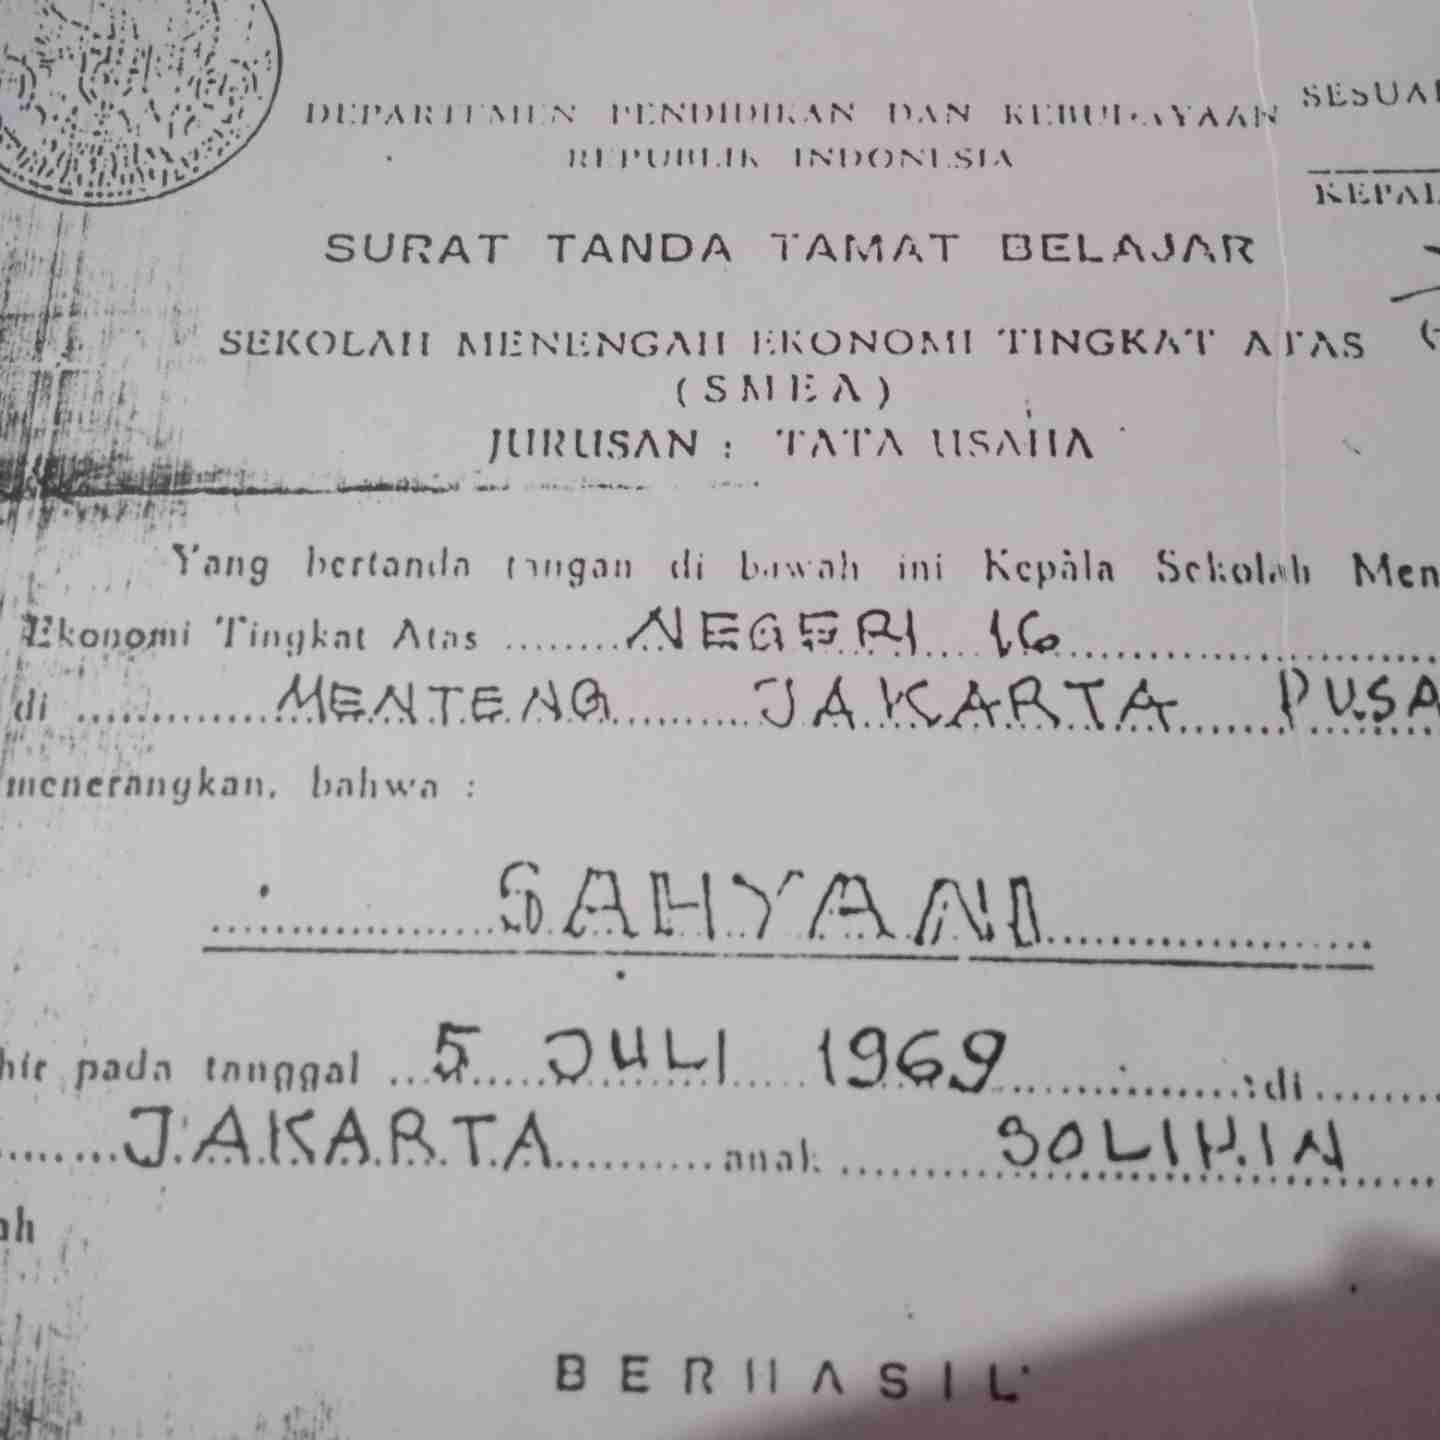 DEPARTEMEN PENDIDIKAN DAN KEBUDAYAAN
REPUBLIK INDONESIA
SESUAI
KEPAL
SURAT TANDA TAMAT BELAJAR
SEKOLAH MENENGAH EKONOMI TINGKAT ATAS
(SMEA)
JURUSAN : TATA USAHA
Yang bertanda tangan di bawah ini Kepala Sekolah Men
Ekonomi Tingkat Atas ........ NEGERI 16 ........
di ........ MENTENG ........ JAKARTA ........ PUSA
menerangkan, bahwa :
........ SAHYANI ........
hir pada tanggal ... 5 JULI 1969 ........ : di ........
........ JAKARTA ........ anak ........ SOLIHIN ........
ah
BERHASIL